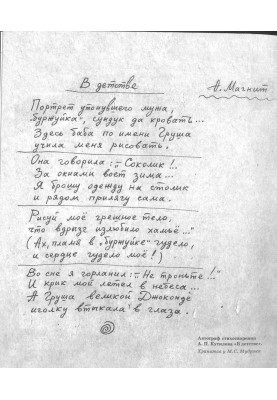 В детстве
А. Магнит
Портрет утонувшего мужа,
"буржуйка", сундук да кровать...
Здесь баба по имени Груша
учила меня рисовать.
Она говорила: "Соколик!..
За окнами воет зима...
Я брошу одежду на столик
и рядом прилягу сама.
Рисуй моё грешное тело,
что вдрызг излюбило хамьё..."
(Ах, пламя в "буржуйке" гудело,
и сердце гудело моё!)
Во сне я горланил: "Не троньте!.."
И крик мой летел в небеса...
А Груша великой Джоконде
иголку втыкала в глаза.
Автограф стихотворения
А. П. «В детстве».
Хранится у М.С.